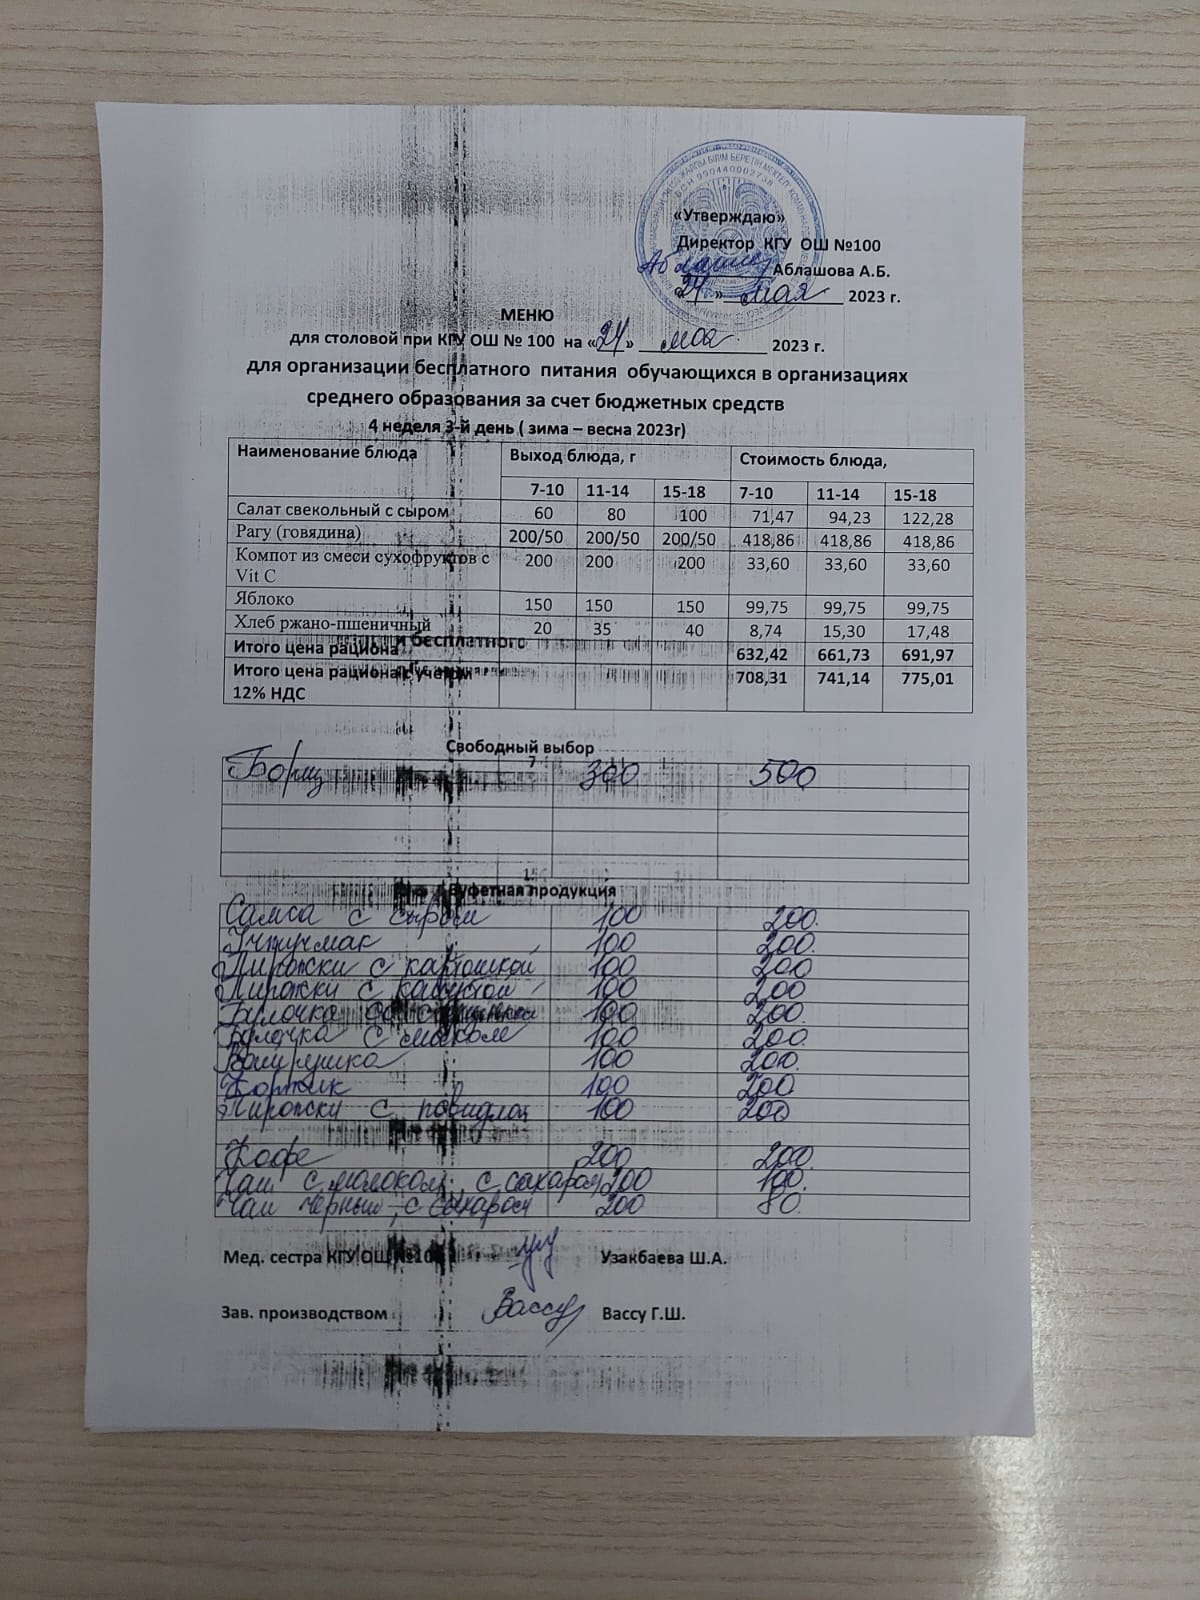 ЖАЛПЫ БІЛІМ БЕРЕТІН МЕКТЕП
БСН 990440002738
«Утверждаю»
Директор КГУ ОШ №100
Аблашова А.Б.
«24» мая 2023 г.
МЕНЮ
для столовой при КГУ ОШ № 100 на «24» мая 2023 г.
для организации бесплатного питания обучающихся в организациях
среднего образования за счет бюджетных средств
4 неделя 3-й день ( зима – весна 2023г)
Наименование блюда Выход блюда, г Стоимость блюда,
7-10 11-14 15-18 7-10 11-14 15-18
Салат свекольный с сыром 60 80 100 71,47 94,23 122,28
Рагу (говядина) 200/50 200/50 200/50 418,86 418,86 418,86
Компот из смеси сухофруктов с 200 200 200 33,60 33,60 33,60
Vit C
Яблоко 150 150 150 99,75 99,75 99,75
Хлеб ржано-пшеничный 20 35 40 8,74 15,30 17,48
и бесплатного
Итого цена рациона 632,42 661,73 691,97
Итого цена рациона с учетом 708,31 741,14 775,01
12% НДС
Свободный выбор
Борщ 300 500
Буфетная продукция
Самса с сыром 100 200
Учпучмак 100 200
Пирожки с картошкой 100 200
Пирожки с капустой 100 200
Булочка со 100 200
Булочка с маком 100 200
Ватрушка 100 200
Коржик 100 200
Пирожки с повидлом 100 200
Кофе 200 200
Чай с молоком, с сахаром 200 100
Чай черный, с сахаром 200 80
Мед. сестра КГУ ОШ №10 Узакбаева Ш.А.
Зав. производством Вассу Вассу Г.Ш.